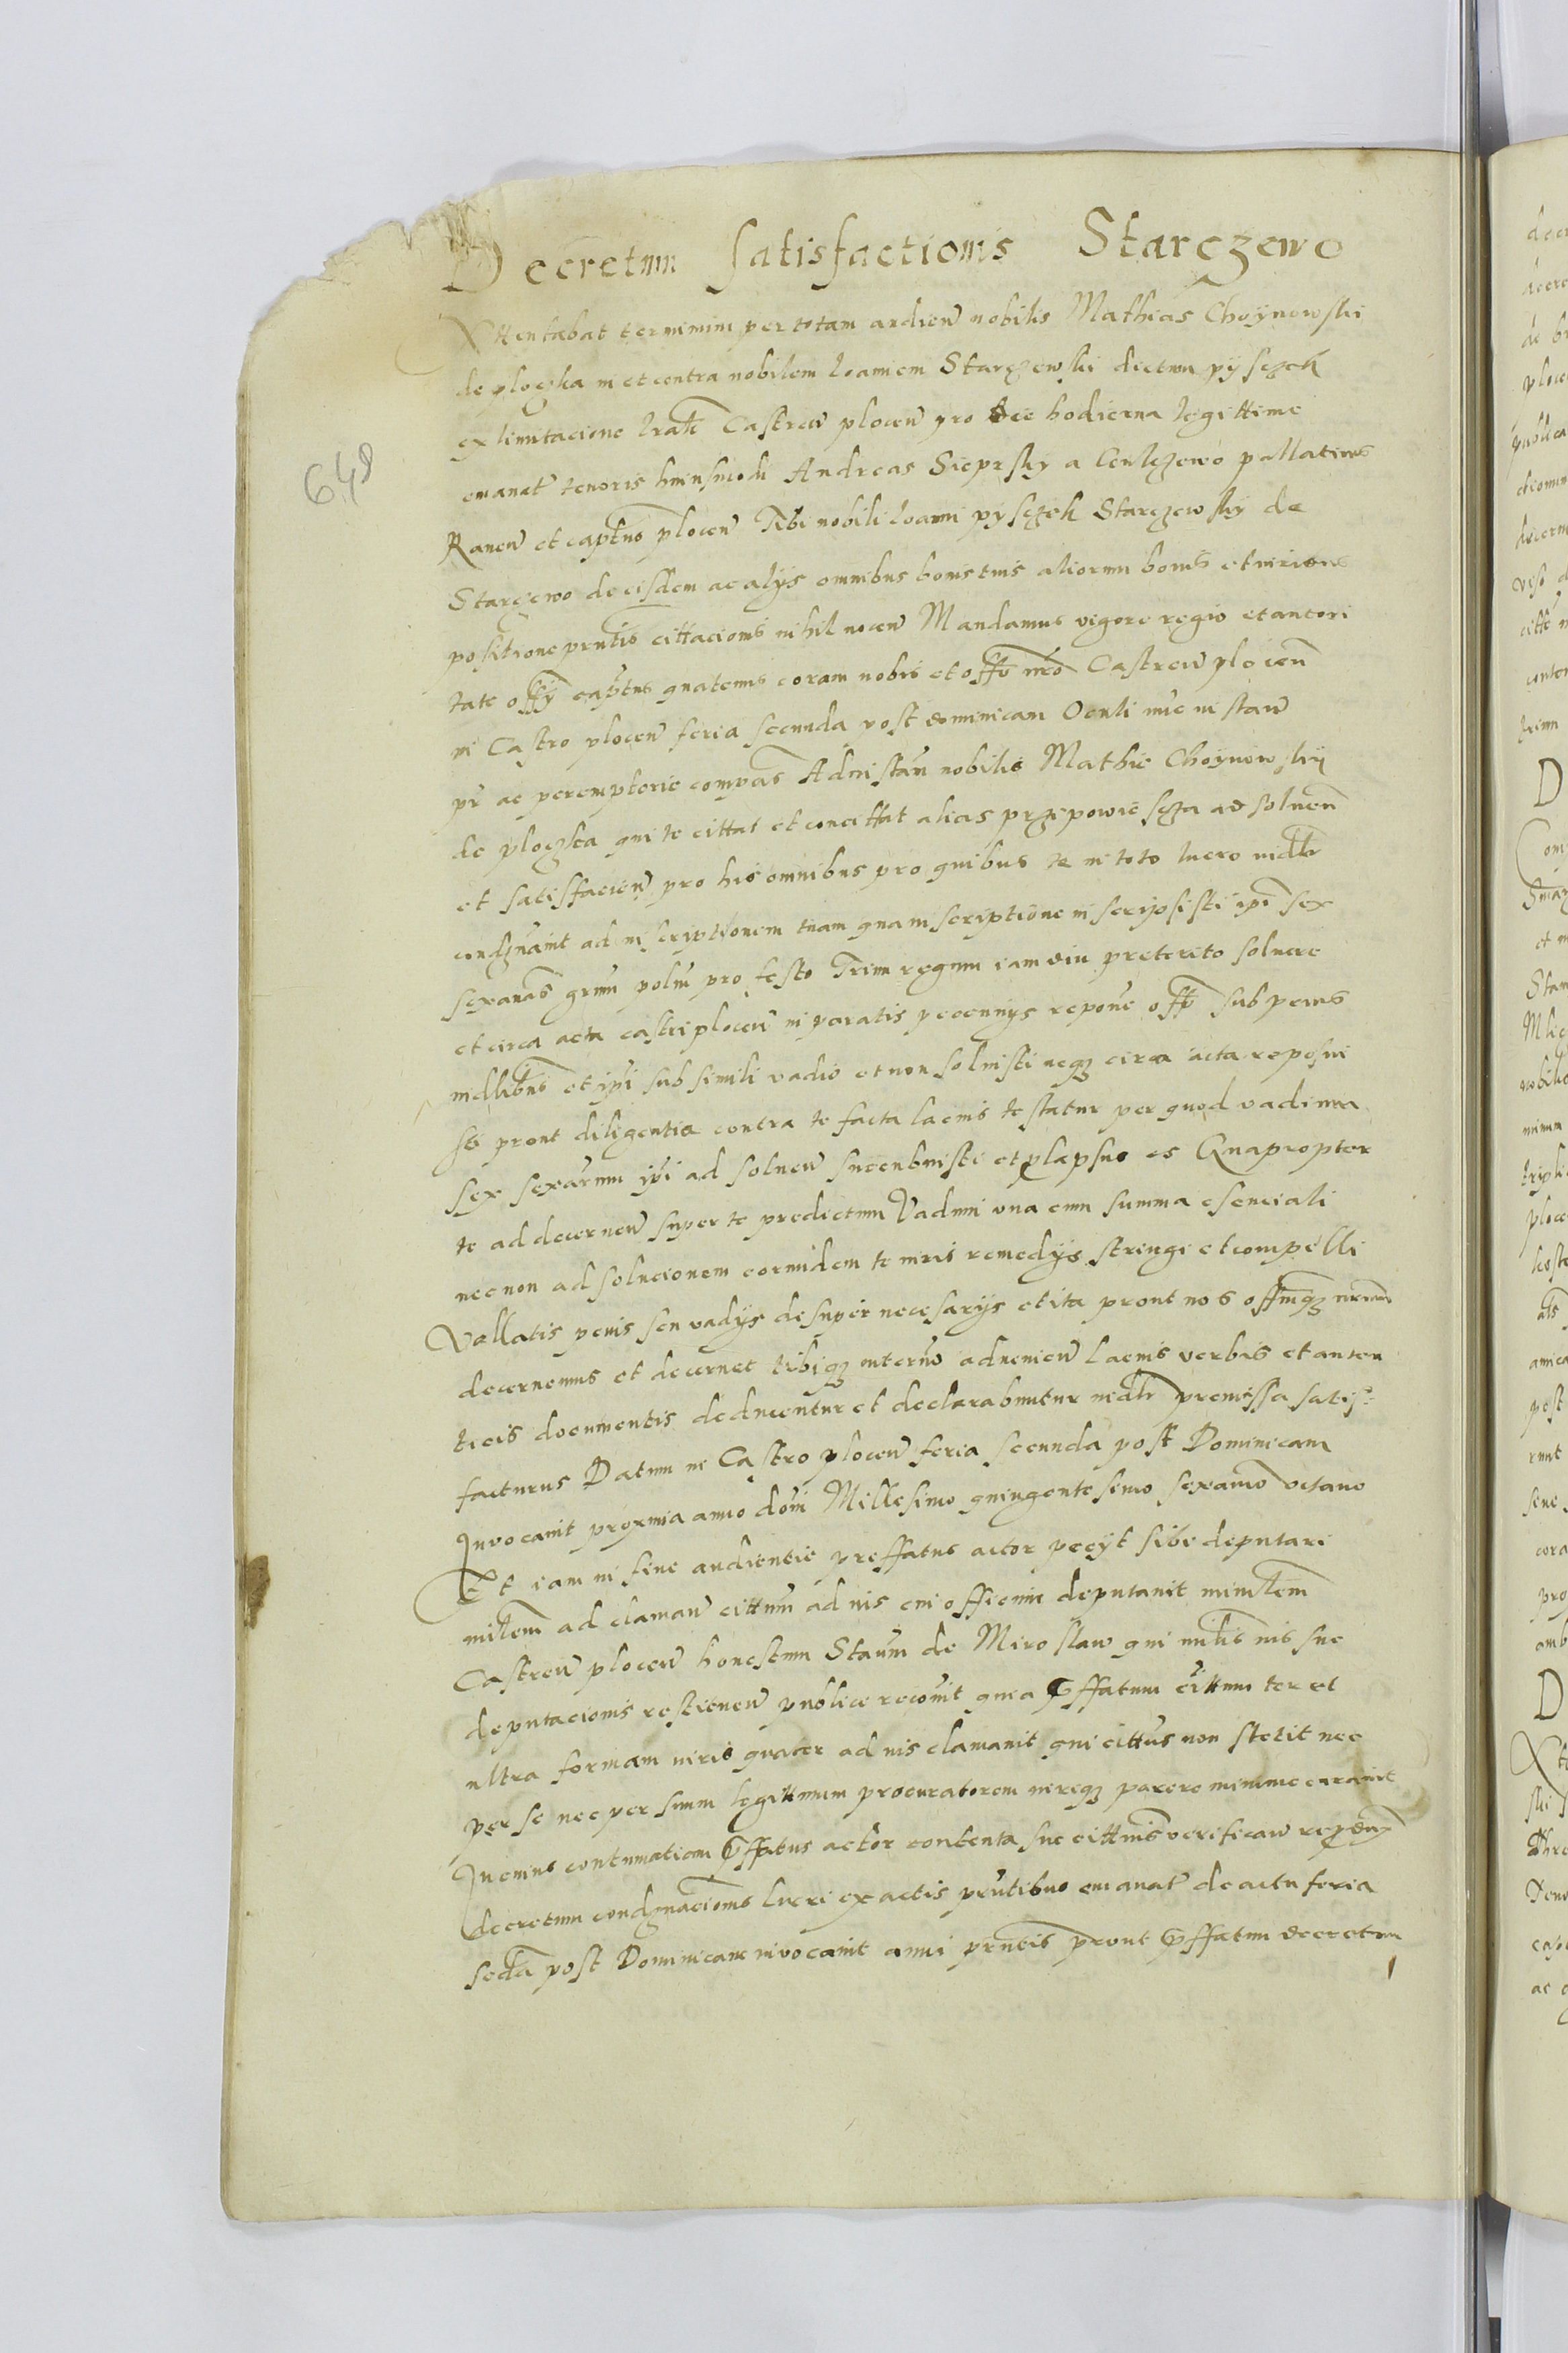 Decretum satisfactionis Starczewo
Attentabat terminum per totam audien nobilis Mathias Choynowski
de ploczka in et contra nobilem Ioannem Starczewski dictum pysczek
ex limitacione Castren plocen pro die hodierna legittime
emanat tenoris huiusmodi Andreas Sieprsky a Gulczewo pallatinus
Raven et captnus plocen Tibi nobili Ioanni pysczek Starczewsky de
Starczewo de eisdem ac alys omnibus bonis tuis aliorum bonis et iurisne
positione pntis cittacionis nihil nocen Mandamus vigore regio et autori
tate offy captus quatenus coram nobis et offo nro Castren plocen
in Castro plocen feria secunda post dominicam Oculi nunc instan
pr ac peremptorie compas Ad instan nobilis Mathie Choynowsky
de ploczka qui te cittat et concittat alias przepowiescza ad soluen
et satisfacien pro his omnibus pro quibus te in toto lucro iudlr
condemnavit ad inscriptionem tuam qua inscriptione inscripsisti ipi sex
sexanas grum polm pro festo Trium regum iam diu preterito soluere
et circa acta castri plocen in paratis pecuniys repone offo sub penis
iudlibus et ipi sub simili vadio et non soluisti neqz circa acta reposui
sti prout diligentia contra te facta lacius testatur per quod vadium
sex sexarum ipi ad soluen succubuisti et plapsus es Quapropter
te ad decernen super te predictum Vadium una cum summa esenciali
nec non ad solucionem eorumdem te iuris remedys stringi et compelli
Vallatis penis seu vadys desuper necesarys et ita prout nos offmqz nrum
decernemus et decernet tibiqz in termo advenien lacius verbis et auten
ticis documentis deducentur et declarabuntur iudlr premissa satis
facturus Datum in Castro plocen feria secunda post Dominicam
Invocavit proxima anno doni Millesimo quingentesimo sexamo octavo
Et iam in fine audientie preffatus actor pecyt sibi deputari
mitlem ad claman cittum ad ius cui officium deputavit minitlem
Castren plocen honestum Staum de Miroslaw qui iudlis ius sue
deputacionis restienen publice recovit quia pffatum cittum ter et
ultra formam iuris quater ad ius clamavit qui cittus non stetit nec
per se nec per suum legittimum procuratorem iureqz parere minime curavit
In cuius contumatiam pffatus actor contenta sue cittnis verifican repduxt
decretum condemnacionis lucri ex actis pntibus emanat de actu feria
secda post Dominicam invocavit anni pntis prout pffatum decretum
648